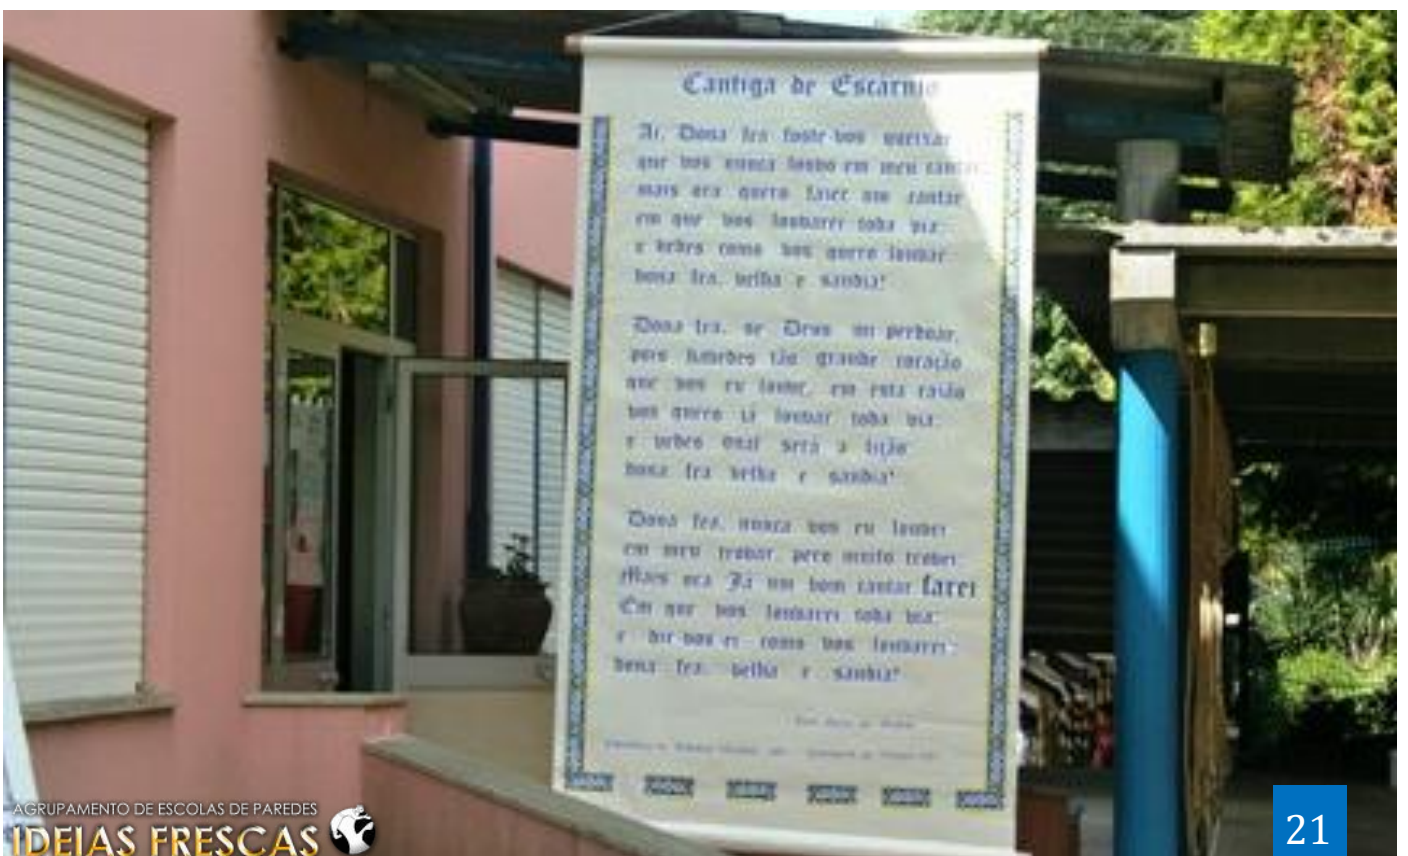 Cantiga de Escárnio
Ai, Dona fea foste-vos queixar
que vos nunca louvo em meu cantar
mais ora quero fazer um cantar
em que vos louvarei toda via:
e vedes como vos quero louvar
dona fea, velha e sandia!
Dona fea, se Deus mi perdoar,
pois havedes tão grande coração
que vos eu loue, em esta razão
vos quero já louvar toda via:
e vedes qual será a lição
dona fea velha e sandia!
Dona fea, nunca vos eu louvei
em meu trobar, pero muito trobei
Mais ora Já um bom cantar farei
Em que vos louvarei toda via:
e dir-vos-ei como vos louvarei:
dona fea, velha e sandia!
AGRUPAMENTO DE ESCOLAS DE PAREDES
IDEIAS FRESCAS
21